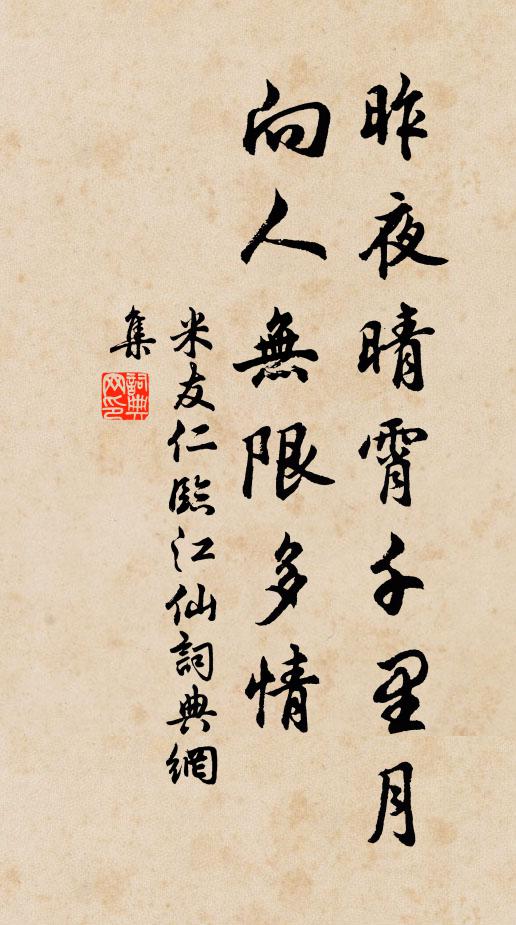 昨夜晴霄千里月
向人無限多情
米友仁臨江仙詞典網
集
詞典
網印